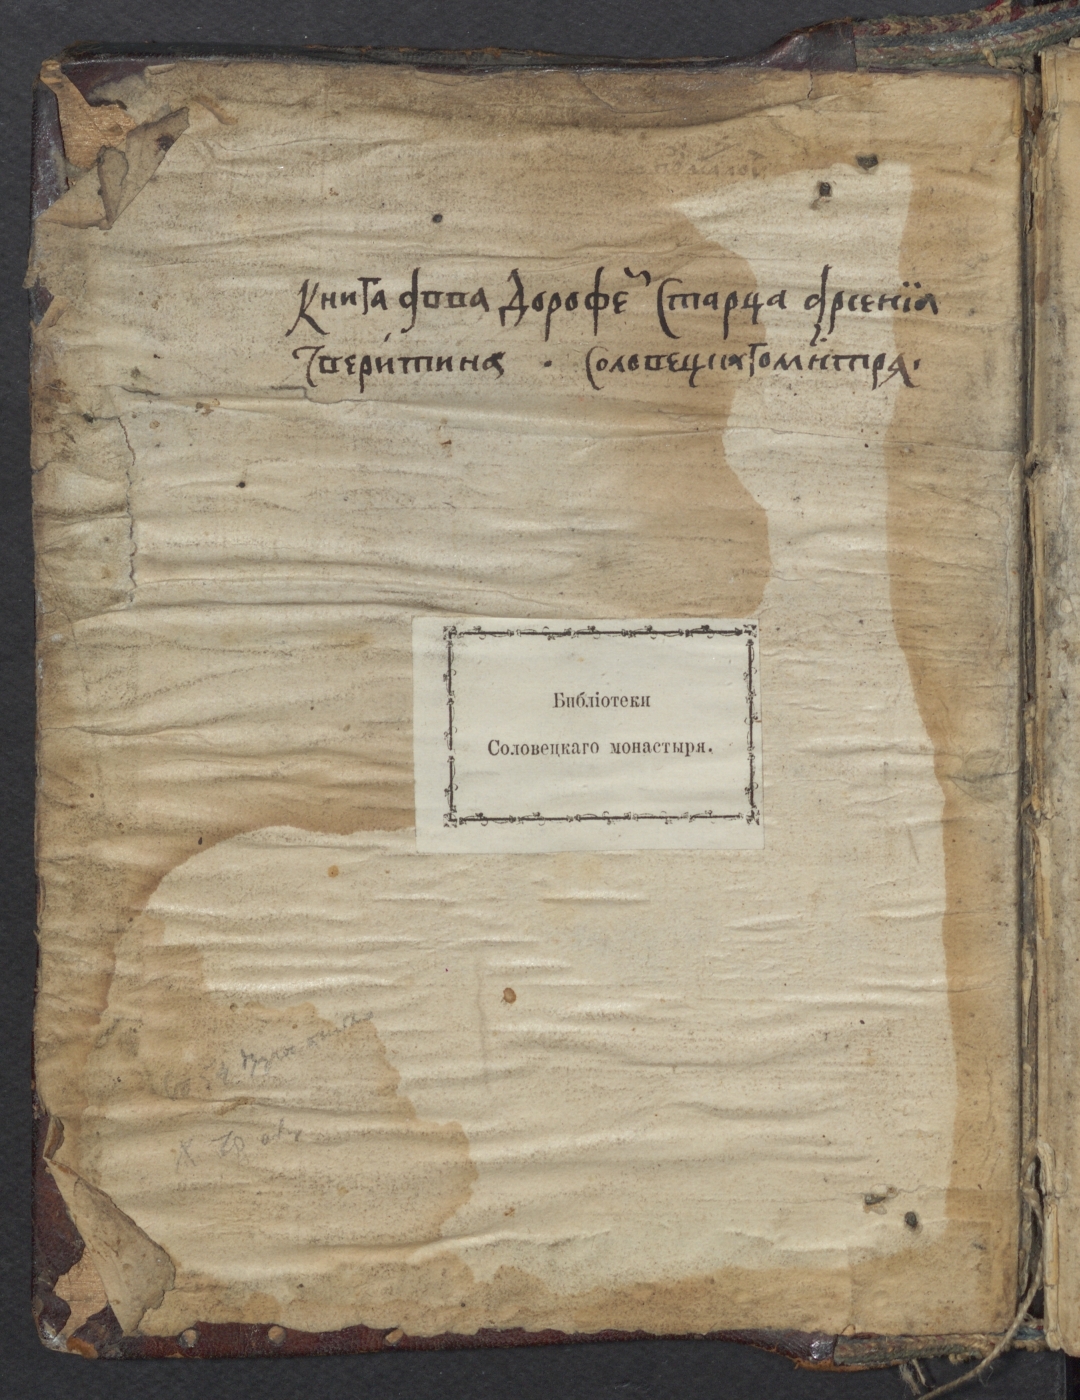 Книга авва Дорофеи Старца арсенїа
Тверитина . соловецкагомнтря.
Библіотеки
Соловецкаго монастыря.